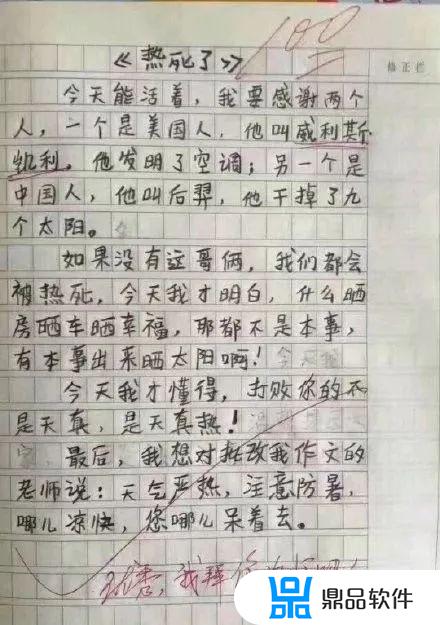 100
修正栏
《热死了》
今天能活着，我要感谢两个
人，一个是美国人，他叫威利斯
凯利。他发明了空调；另一个是
中国人，他叫后羿，他干掉了九
个太阳。
如果没有这哥俩，我们都会
被热死，今天我才明白，什么晒
房晒车晒幸福，那都不是本事，
有本事出来晒太阳啊！
今天我才懂得，打败你的不
是天真，是天真热！
最后，我想对批改我作文的
老师说：天气严热，注意防暑，
哪儿凉快，您哪儿呆着去。
鼎品软件